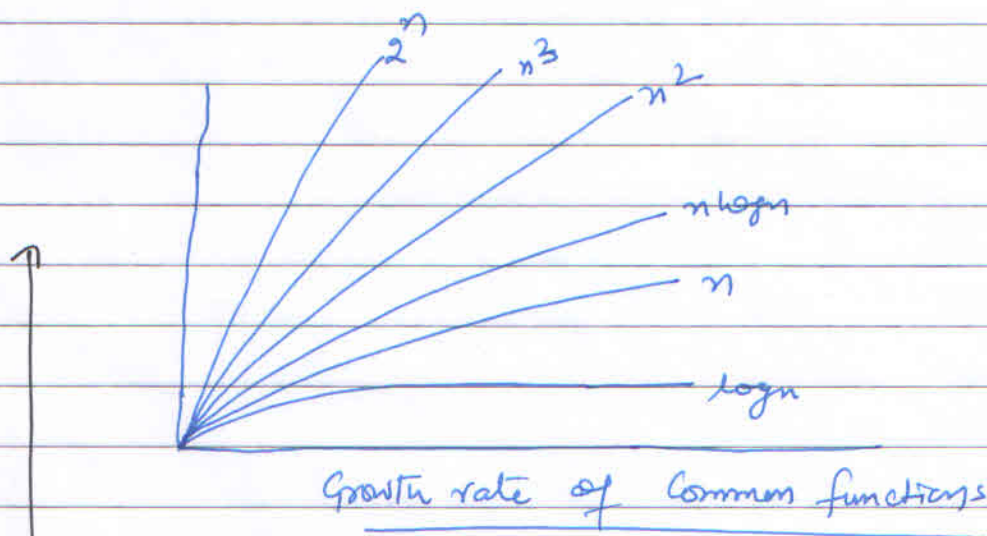 2^n
n^3
n^2
n logn
n
logn
Growth rate of Common functions